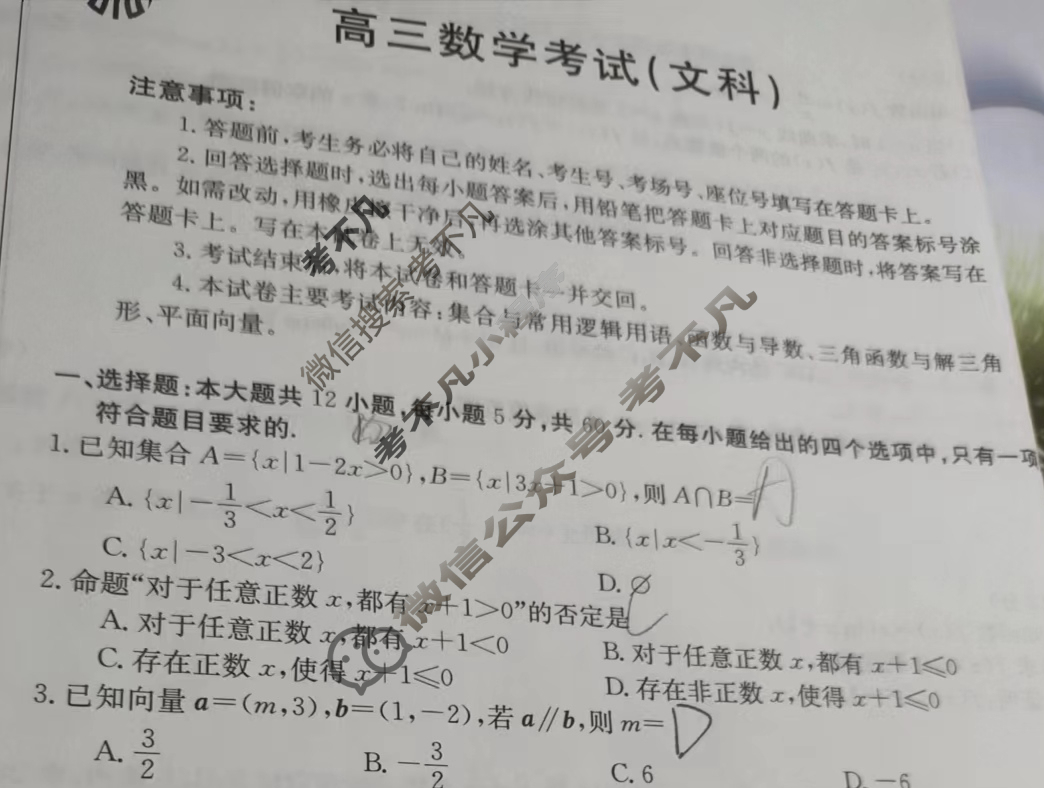 高三数学考试(文科)
注意事项:
1. 答题前,考生务必将自己的姓名、考生号、考场号、座位号填写在答题卡上。
2. 回答选择题时,选出每小题答案后,用铅笔把答题卡上对应题目的答案标号涂
黑。如需改动,用橡皮擦干净后,再选涂其他答案标号。回答非选择题时,将答案写在
答题卡上。写在本试卷上无效。
3. 考试结束后,将本试卷和答题卡一并交回。
4. 本试卷主要考试内容:集合与常用逻辑用语、函数与导数、三角函数与解三角
形、平面向量。
一、选择题:本大题共 12 小题,每小题 5 分,共 60 分. 在每小题给出的四个选项中,只有一项
符合题目要求的.
1. 已知集合 A={x|1-2x>0},B={x|3x+1>0},则 A∩B= A
A. {x|-1/3<x<1/2}
B. {x|x<-1/3}
C. {x|-3<x<2}
D. ∅
2. 命题“对于任意正数 x,都有 x+1>0”的否定是 C
A. 对于任意正数 x,都有 x+1<0
B. 对于任意正数 x,都有 x+1≤0
C. 存在正数 x,使得 x+1≤0
D. 存在非正数 x,使得 x+1≤0
3. 已知向量 a=(m,3),b=(1,-2),若 a∥b,则 m= D
A. 3/2
B. -3/2
C. 6
D. -6
考不凡
微信搜索 考不凡
考不凡小程序
微信公众号 考不凡